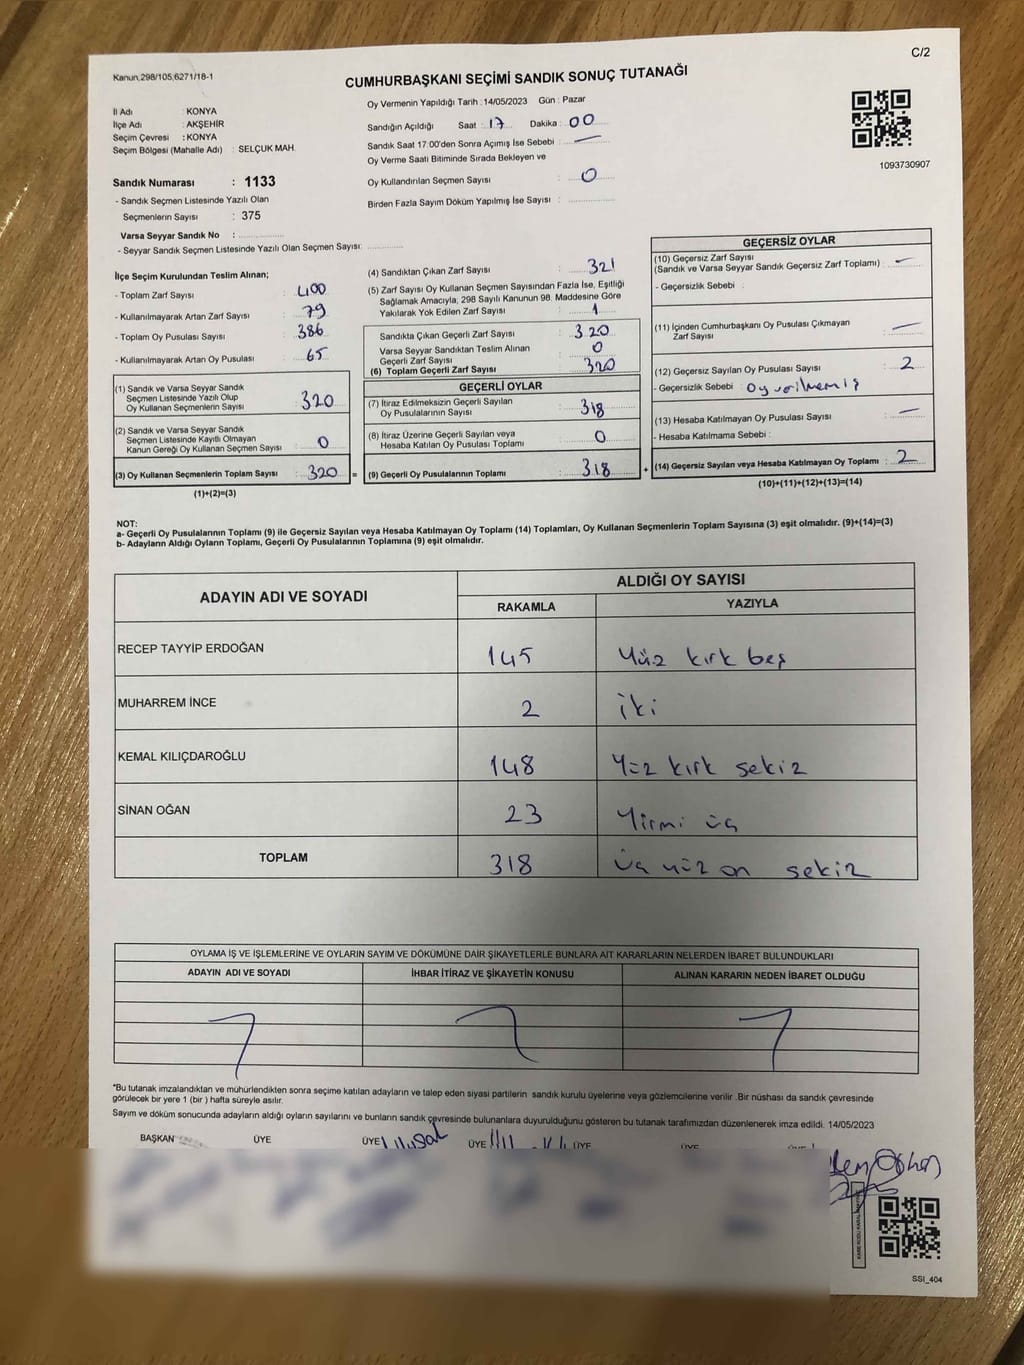 C/2
Kanun,298/105,6271/18-1
CUMHURBAŞKANI SEÇİMİ SANDIK SONUÇ TUTANAĞI
İl Adı : KONYA
İlçe Adı : AKŞEHİR
Seçim Çevresi : KONYA
Seçim Bölgesi (Mahalle Adı) : SELÇUK MAH.
Sandık Numarası : 1133
- Sandık Seçmen Listesinde Yazılı Olan
Seçmenlerin Sayısı : 375
Varsa Seyyar Sandık No :
- Seyyar Sandık Seçmen Listesinde Yazılı Olan Seçmen Sayısı:
Oy Vermenin Yapıldığı Tarih : 14/05/2023 Gün : Pazar
Sandığın Açıldığı Saat : 17 Dakika : 00
Sandık Saat 17:00'den Sonra Açımış İse Sebebi : —
Oy Verme Saati Bitiminde Sırada Bekleyen ve
Oy Kullandırılan Seçmen Sayısı : 0
Birden Fazla Sayım Döküm Yapılmış İse Sayısı :
1093730907
İlçe Seçim Kurulundan Teslim Alınan;
- Toplam Zarf Sayısı : 400
- Kullanılmayarak Artan Zarf Sayısı : 79
- Toplam Oy Pusulası Sayısı : 386
- Kullanılmayarak Artan Oy Pusulası : 65
(1) Sandık ve Varsa Seyyar Sandık
Seçmen Listesinde Yazılı Olup
Oy Kullanan Seçmenlerin Sayısı : 320
(2) Sandık ve Varsa Seyyar Sandık
Seçmen Listesinde Kayıtlı Olmayan
Kanun Gereği Oy Kullanan Seçmen Sayısı : 0
(3) Oy Kullanan Seçmenlerin Toplam Sayısı : 320 =
(1)+(2)=(3)
(4) Sandıktan Çıkan Zarf Sayısı : 321
(5) Zarf Sayısı Oy Kullanan Seçmen Sayısından Fazla İse, Eşitliği
Sağlamak Amacıyla, 298 Sayılı Kanunun 98. Maddesine Göre
Yakılarak Yok Edilen Zarf Sayısı : 1
Sandıkta Çıkan Geçerli Zarf Sayısı : 320
Varsa Seyyar Sandıktan Teslim Alınan
Geçerli Zarf Sayısı : 0
(6) Toplam Geçerli Zarf Sayısı : 320
GEÇERLİ OYLAR
(7) İtiraz Edilmeksizin Geçerli Sayılan
Oy Pusulalarının Sayısı : 318
(8) İtiraz Üzerine Geçerli Sayılan veya
Hesaba Katılan Oy Pusulası Toplamı : 0
(9) Geçerli Oy Pusulalarının Toplamı : 318 +
GEÇERSİZ OYLAR
(10) Geçersiz Zarf Sayısı
(Sandık ve Varsa Seyyar Sandık Geçersiz Zarf Toplamı) : —
- Geçersizlik Sebebi :
(11) İçinden Cumhurbaşkanı Oy Pusulası Çıkmayan
Zarf Sayısı : —
(12) Geçersiz Sayılan Oy Pusulası Sayısı : 2
- Geçersizlik Sebebi : Oy verilmemiş
(13) Hesaba Katılmayan Oy Pusulası Sayısı : —
- Hesaba Katılmama Sebebi :
(14) Geçersiz Sayılan veya Hesaba Katılmayan Oy Toplamı : 2
(10)+(11)+(12)+(13)=(14)
NOT:
a- Geçerli Oy Pusulalarının Toplamı (9) ile Geçersiz Sayılan veya Hesaba Katılmayan Oy Toplamı (14) Toplamları, Oy Kullanan Seçmenlerin Toplam Sayısına (3) eşit olmalıdır. (9)+(14)=(3)
b- Adayların Aldığı Oyların Toplamı, Geçerli Oy Pusulalarının Toplamına (9) eşit olmalıdır.
ADAYIN ADI VE SOYADI
ALDIĞI OY SAYISI
RAKAMLA YAZIYLA
RECEP TAYYİP ERDOĞAN 145 Yüz kırk beş
MUHARREM İNCE 2 iki
KEMAL KILIÇDAROĞLU 148 Yüz kırk sekiz
SİNAN OĞAN 23 Yirmi üç
TOPLAM 318 üç yüz on sekiz
OYLAMA İŞ VE İŞLEMLERİNE VE OYLARIN SAYIM VE DÖKÜMÜNE DAİR ŞİKAYETLERLE BUNLARA AİT KARARLARIN NELERDEN İBARET BULUNDUKLARI
ADAYIN ADI VE SOYADI İHBAR İTİRAZ VE ŞİKAYETİN KONUSU ALINAN KARARIN NEDEN İBARET OLDUĞU
*Bu tutanak imzalandıktan ve mühürlendikten sonra seçime katılan adayların ve talep eden siyasi partilerin sandık kurulu üyelerine veya gözlemcilerine verilir .Bir nüshası da sandık çevresinde
görülecek bir yere 1 (bir ) hafta süreyle asılır.
Sayım ve döküm sonucunda adayların aldığı oyların sayılarını ve bunların sandık çevresinde bulunanlara duyurulduğunu gösteren bu tutanak tarafımızdan düzenlenerek imza edildi. 14/05/2023
BAŞKAN ÜYE ÜYE ÜYE ÜYE ÜYE
SSI_404